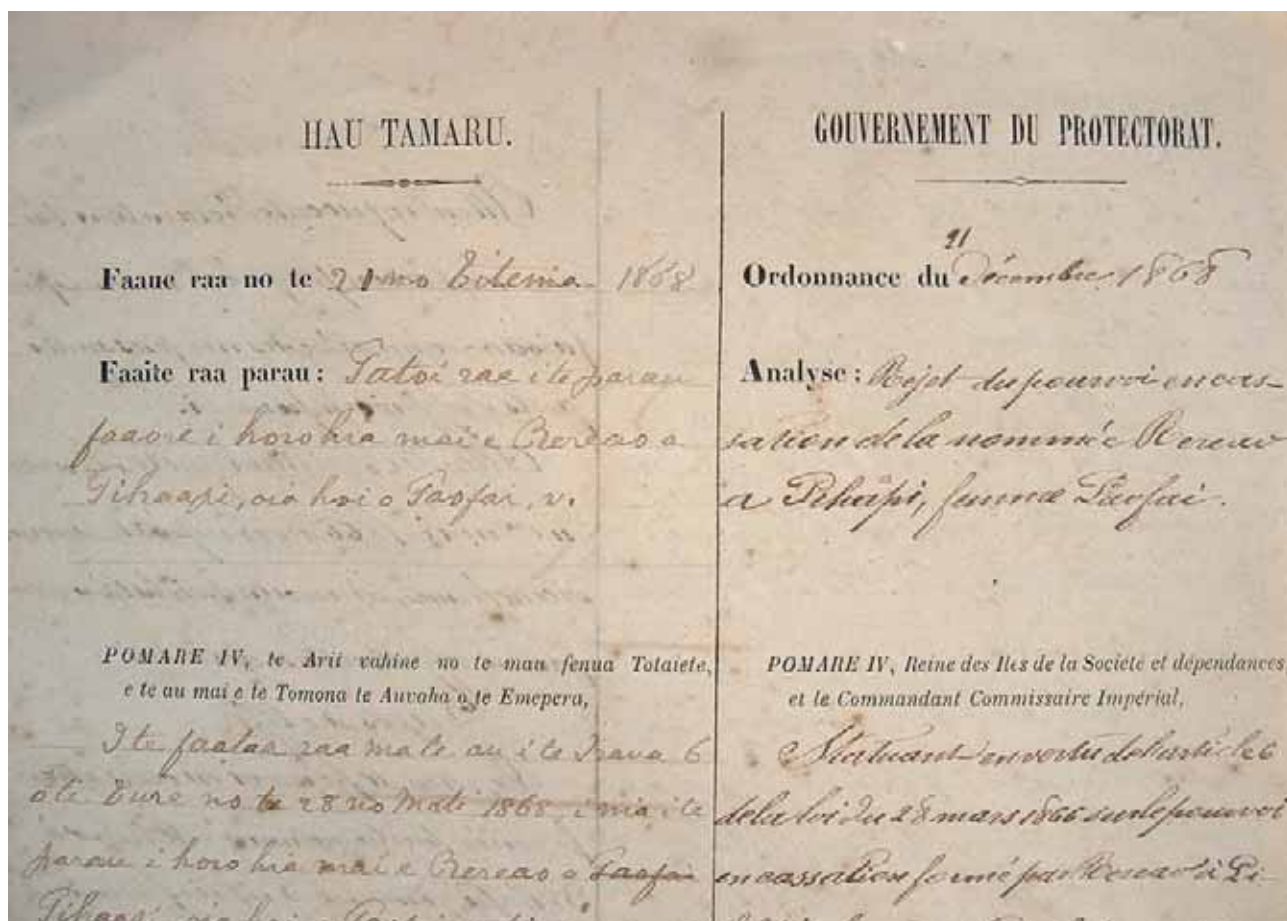 HAU TAMARU.
Faaue raa no te 21 no Titema 1868
Faaite raa parau: Patoi raa i te parau
faaore i horo hia mai e Rereao a
Pihaapi, oia hoi o Paofai, v.
POMARE IV, te Arii vahine no te mau fenua Totaiete,
e te au mai e te Tomona te Auvaha o te Emepera,
I te faataa raa ma te au i te Irava 6
o te Ture no te 28 no Mati 1868, i nia i te
parau i horo hia mai e Rereao a Paofai
GOUVERNEMENT DU PROTECTORAT.
21
Ordonnance du décembre 1868
Analyse: Rejet du pourvoi en cas-
sation de la nommée Rereao
a Pihapi, femme Paofai.
POMARE IV, Reine des Iles de la Société et dépendances
et le Commandant Commissaire Impérial,
Statuant en vertu de l'article 6
de la loi du 28 mars 1866 sur le pourvoi
en cassation formé par Rereao a Pi-